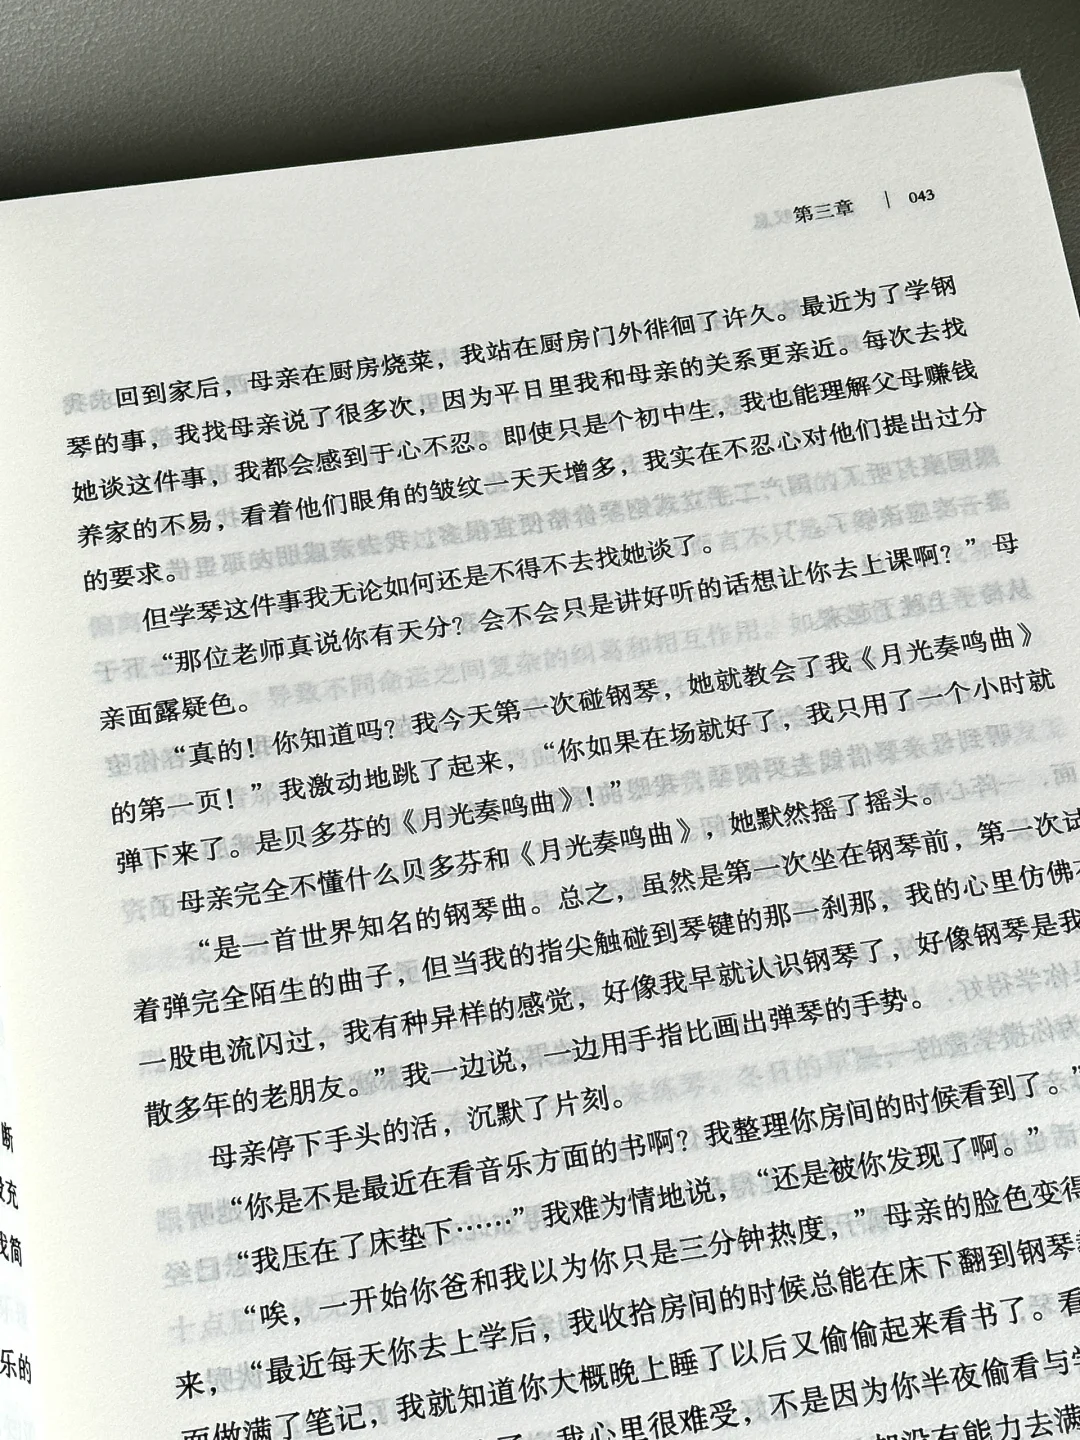 第三章 | 043
回到家后，母亲在厨房烧菜，我站在厨房门外徘徊了许久。最近为了学钢
琴的事，我找母亲说了很多次，因为平日里我和母亲的关系更亲近。每次去找
她谈这件事，我都会感到于心不忍。即使只是个初中生，我也能理解父母赚钱
养家的不易，看着他们眼角的皱纹一天天增多，我实在不忍心对他们提出过分
的要求。
但学琴这件事我无论如何还是不得不去找她谈了。
“那位老师真说你有天分？会不会只是讲好听的话想让你去上课啊？”母
亲面露疑色。
“真的！你知道吗？我今天第一次碰钢琴，她就教会了我《月光奏鸣曲》
的第一页！”我激动地跳了起来，“你如果在场就好了，我只用了一个小时就
弹下来了。是贝多芬的《月光奏鸣曲》！”
母亲完全不懂什么贝多芬和《月光奏鸣曲》，她默然摇了摇头。
“是一首世界知名的钢琴曲。总之，虽然是第一次坐在钢琴前，第一次试
着弹完全陌生的曲子，但当我的指尖触碰到琴键的那一刹那，我的心里仿佛
一股电流闪过，我有种异样的感觉，好像我早就认识钢琴了，好像钢琴是我
散多年的老朋友。”我一边说，一边用手指比画出弹琴的手势。
母亲停下手头的活，沉默了片刻。
“你是不是最近在看音乐方面的书啊？我整理你房间的时候看到了。”
“我压在了床垫下……”我难为情地说，“还是被你发现了啊。”
“唉，一开始你爸和我以为你只是三分钟热度，”母亲的脸色变得
来，“最近每天你去上学后，我收拾房间的时候总能在床下翻到钢琴
面做满了笔记，我就知道你大概晚上睡了以后又偷偷起来看书了。看
我心里很难受，不是因为你半夜偷看与
没有能力去满
断
充
我简
乐的